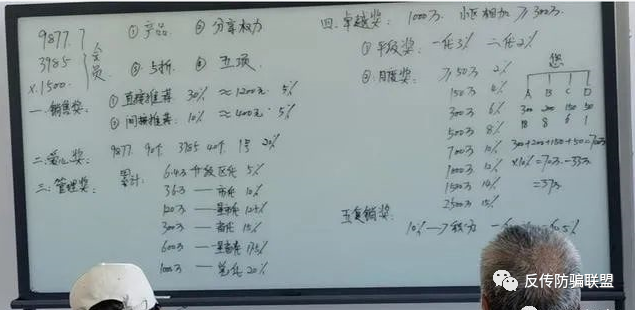 9877 ① 产品 ② 分享权力
3985 会员
x.1500 ③ 5折 ④ 五项
一. 销售奖: ① 直接推荐 30% ≈1200元 5%
② 间接推荐: 10% ≈400元 5%
二. 爱心奖: 9877 90个 3985 40个 1号 20%
三. 管理奖: 累计: 6.4万 升级区代 5%
36万 — 市代 10%
120万 — 12.5%
300万 — 省代 15%
600万 — 17.5%
1000万 — 20%
四. 卓越奖: 1000万 小区相加 ≥300万
① 平级奖: 一代3% 二代2%
② 月度奖: ≥50万 2%
150万 4%
300万 6%
500万 8%
700万 10%
1000万 12%
1500万 14%
2500万 15%
您
A B C D
300 200 150 50
18 8 6 1
300+200+150+50=700万
×10%=70万-33万
=37万
五 复销奖:
10%→
反传防骗联盟